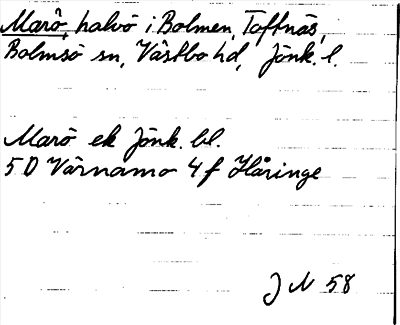 Marö, halvö i Bolmen, Toftnäs,
Bolmsö sn, Västbo hd, Jönk. l.
Marö ek Jönk. bl.
5 D Värnamo 4 f Håringe
J N 58